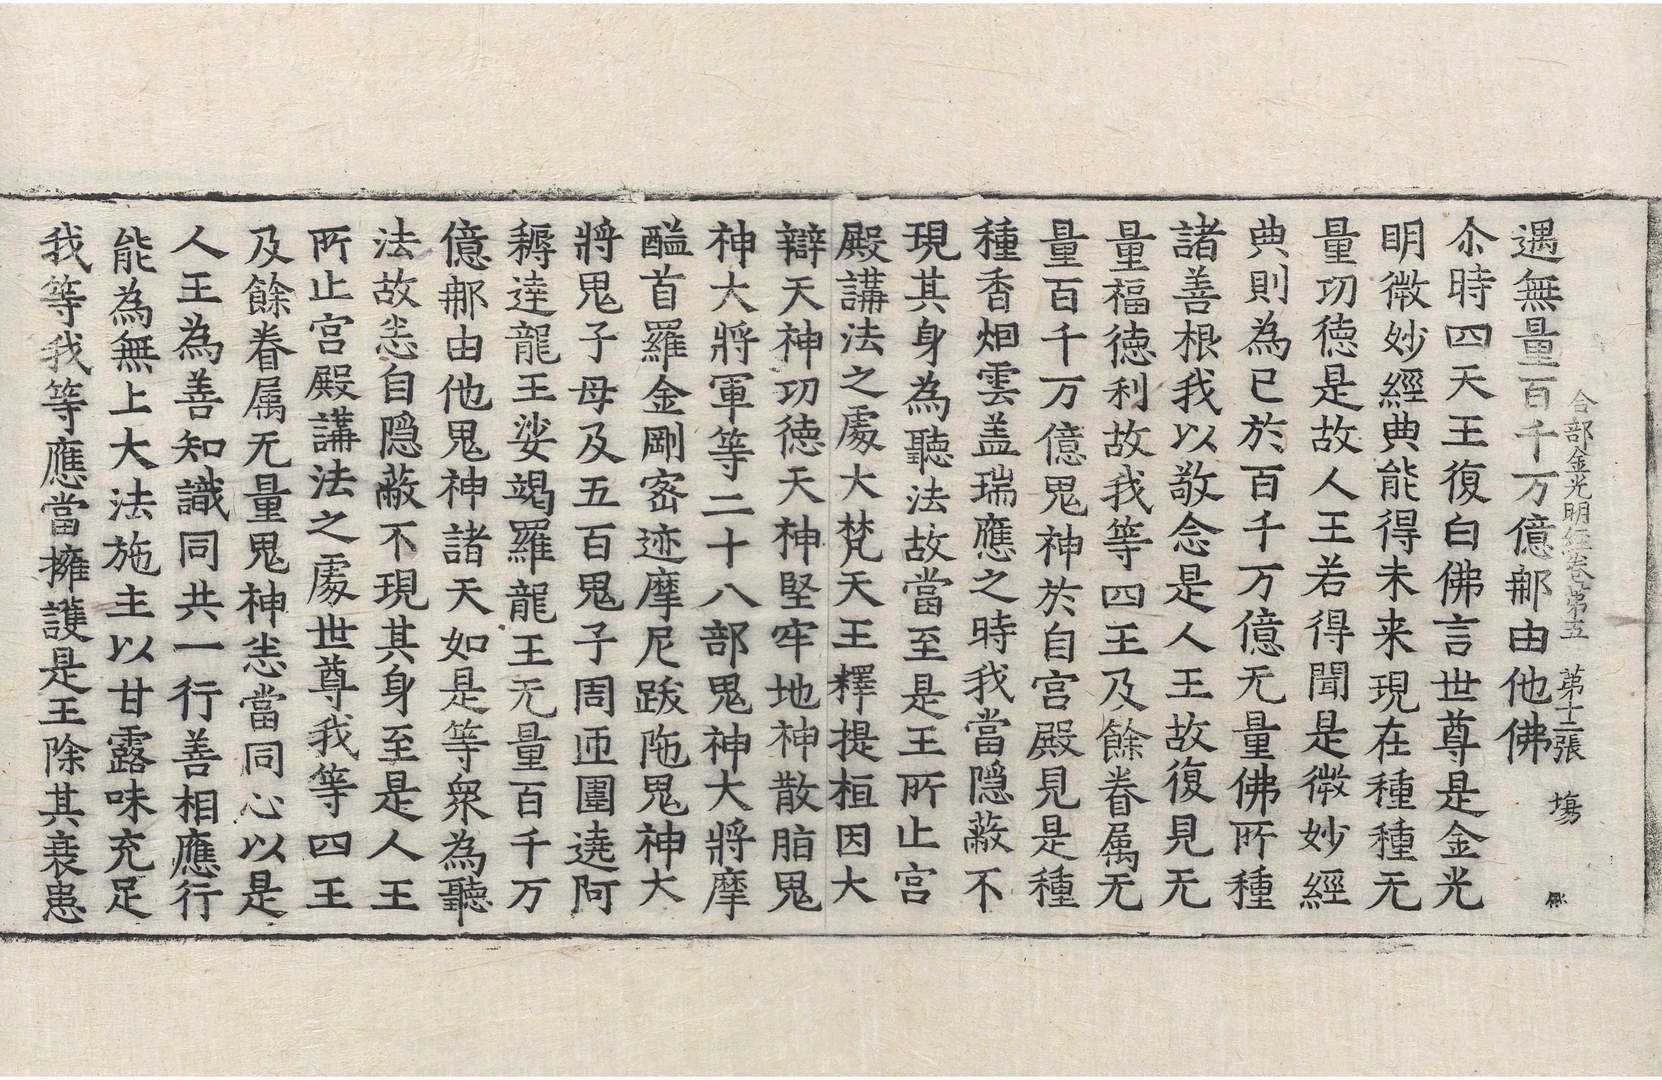 合部金光明經卷第五 第十二張 塲
遇無量百千万億𨚗由他佛
尒時四天王復白佛言世尊是金光
明微妙經典能得未来現在種種无
量功徳是故人王若得聞是微妙經
典則為已於百千万億无量佛所種
諸善根我以敬念是人王故復見无
量福徳利故我等四王及餘眷属无
量百千万億鬼神於自宫殿見是種
種香烟雲盖瑞應之時我當隠蔽不
現其身為聽法故當至是王所止宫
殿講法之處大梵天王釋提桓因大
辯天神功徳天神堅牢地神散脂鬼
神大將軍等二十八部鬼神大將摩
醯首羅金剛宻迹摩尼跋陁鬼神大
將鬼子母及五百鬼子周匝圍遶阿
耨逹龍王娑竭羅龍王无量百千万
億𨚗由他鬼神諸天如是等衆為聽
法故悉自隠蔽不現其身至是人王
所止宫殿講法之處世尊我等四王
及餘眷属无量鬼神悉當同心以是
人王為善知識同共一行善相應行
能為無上大法施主以甘露味充足
我等我等應當擁護是王除其衰患